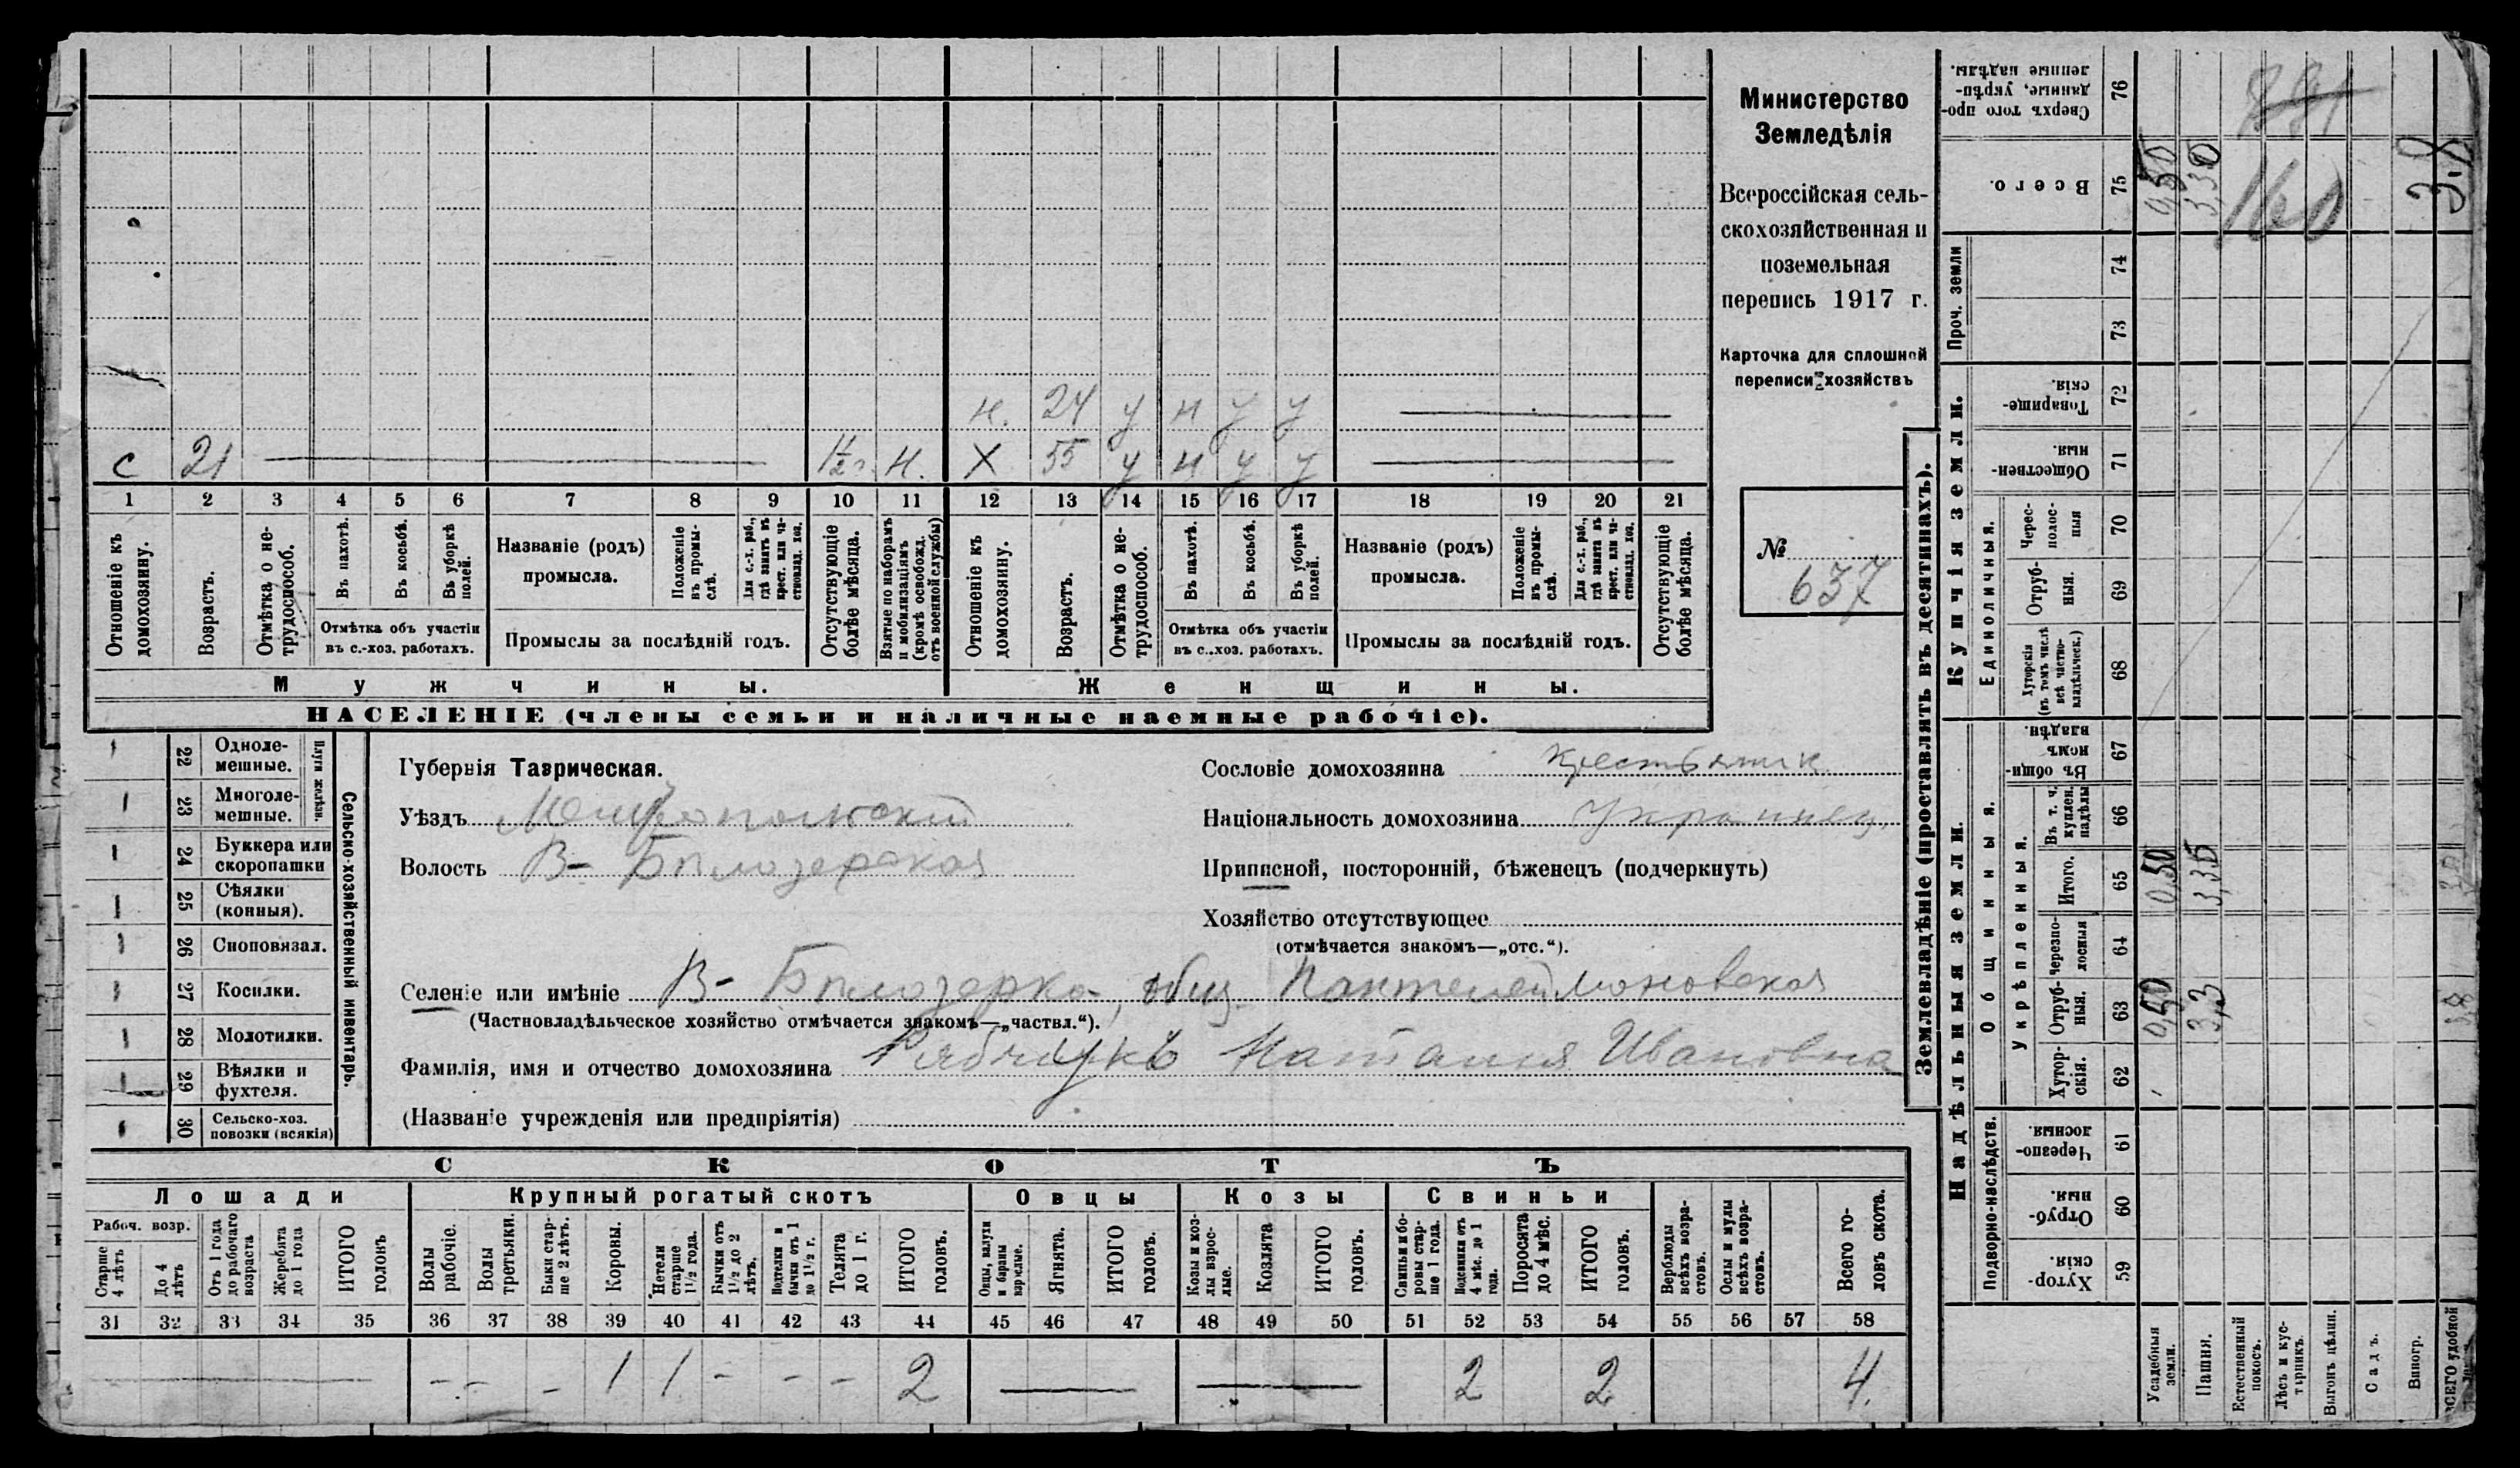 Министерство
Земледѣлія
Всероссійская сель-
скохозяйственная и
поземельная
перепись 1917 г.
Карточка для сплошной
переписи хозяйствъ
№
637
н. 24 у н у у
с 21 1½ г. н. Х 55 у н у у
1 2 3 4 5 6 7 8 9 10 11 12 13 14 15 16 17 18 19 20 21
Отношеніе къ домохозяину.
Возрастъ.
Отмѣтка о не-трудоспособ.
Въ пахотѣ.
Въ косьбѣ.
Въ уборкѣ полей.
Отмѣтка объ участіи
въ с.-хоз. работахъ.
Названіе (родъ)
промысла.
Положеніе въ промы-слѣ.
Для с.-х. раб., гдѣ занятъ въ крест. или ча-стновлад. хоз.
Промыслы за послѣдній годъ.
Отсутствующіе болѣе мѣсяца.
Взятые по наборамъ и мобилизаціямъ (кромѣ освобожд. отъ военной службы)
Отношеніе къ домохозяину.
Возрастъ.
Отмѣтка о не-трудоспособ.
Въ пахотѣ.
Въ косьбѣ.
Въ уборкѣ полей.
Отмѣтка объ участіи
въ с.-хоз. работахъ.
Названіе (родъ)
промысла.
Положеніе въ промы-слѣ.
Для с.-х. раб., гдѣ занята въ крест. или ча-стновлад. хоз.
Промыслы за послѣдній годъ.
Отсутствующіе болѣе мѣсяца.
Мужчины. Женщины.
НАСЕЛЕНІЕ (члены семьи и наличные наемные рабочіе).
Сельско-хозяйственный инвентарь.
Плуги желѣзн.
22 Одноле-мешные.
23 Многоле-мешные.
24 Буккера или скоропашки
25 Сѣялки (конныя).
26 Сноповязал.
27 Косилки.
28 Молотилки.
29 Вѣялки и фухтеля.
30 Сельско-хоз. повозки (всякія)
Губернія Таврическая.
Уѣздъ Мелитопольскій
Волость В- Бѣлозерская
Сословіе домохозяина крестьянк
Національность домохозяина Украинец
Приписной, посторонній, бѣженецъ (подчеркнуть)
Хозяйство отсутствующее
(отмѣчается знакомъ—„отс.“).
Селеніе или имѣніе В- Бѣлозерка, общ. Пантелеймоновская
(Частновладѣльческое хозяйство отмѣчается знакомъ—„частвл.“).
Фамилія, имя и отчество домохозяина Рябчукъ Наталия Ивановна
(Названіе учрежденія или предпріятія)
СКОТЪ
Лошади Крупный рогатый скотъ Овцы Козы Свиньи
Рабоч. возр.
Старше 4 лѣтъ
До 4 лѣтъ
Отъ 1 года до рабочаго возраста
Жеребята до 1 года
ИТОГО головъ
Волы рабочіе.
Волы третьяки.
Быки стар-ше 2 лѣтъ.
Коровы.
Нетели старше 1½ года.
Бычки отъ 1½ до 2 лѣтъ.
Подтелки и бычки отъ 1 до 1½ г.
Телята до 1 г.
ИТОГО головъ.
Овцы, валухи и бараны взрослые.
Ягнята.
ИТОГО головъ.
Козы и коз-лы взрос-лые.
Козлята
ИТОГО головъ.
Свиньи и бо-ровы стар-ше 1 года.
Подсвинки отъ 4 мѣс. до 1 года.
Поросята до 4 мѣс.
ИТОГО головъ.
Верблюды всѣхъ возра-стовъ.
Ослы и мулы всѣхъ возра-стовъ.
Всего го-ловъ скота.
31 32 33 34 35 36 37 38 39 40 41 42 43 44 45 46 47 48 49 50 51 52 53 54 55 56 57 58
— - - - 1 1 - - - 2 — — 2 2 4.
Землевладѣніе (проставлять въ десятинахъ).
Надѣльныя земли. Купчія земли. Проч. земли
Подворно-наслѣдств. Общинныя. Единоличныя.
Укрѣпленныя.
Хутор-скія. 59
Отруб-ныя. 60
Черезпо-лосныя. 61
Хутор-скія. 62
Отруб-ныя. 63
Черезпо-лосныя 64
Итого. 65
Въ т. ч. куплен. надѣлы 66
Въ общин-номъ владѣн. 67
Хуторскія (въ томъ числѣ всѣ частно-владѣльческ.) 68
Отруб-ныя. 69
Черес-полос-ныя 70
Обществен-ныя. 71
Товарище-скія. 72
73
74
Всего. 75
Сверхъ того про-данные, укрѣп-ленные надѣлы. 76
Усадебныя земли. 0,50 0,50 0,50
Пашня. 3,3 3,3 3,30
Естественный покосъ.
Лѣсъ и кус-тарникъ.
Выгонъ цѣлин.
Садъ.
Виногр.
ВСЕГО удобной 3,8 3,8
160